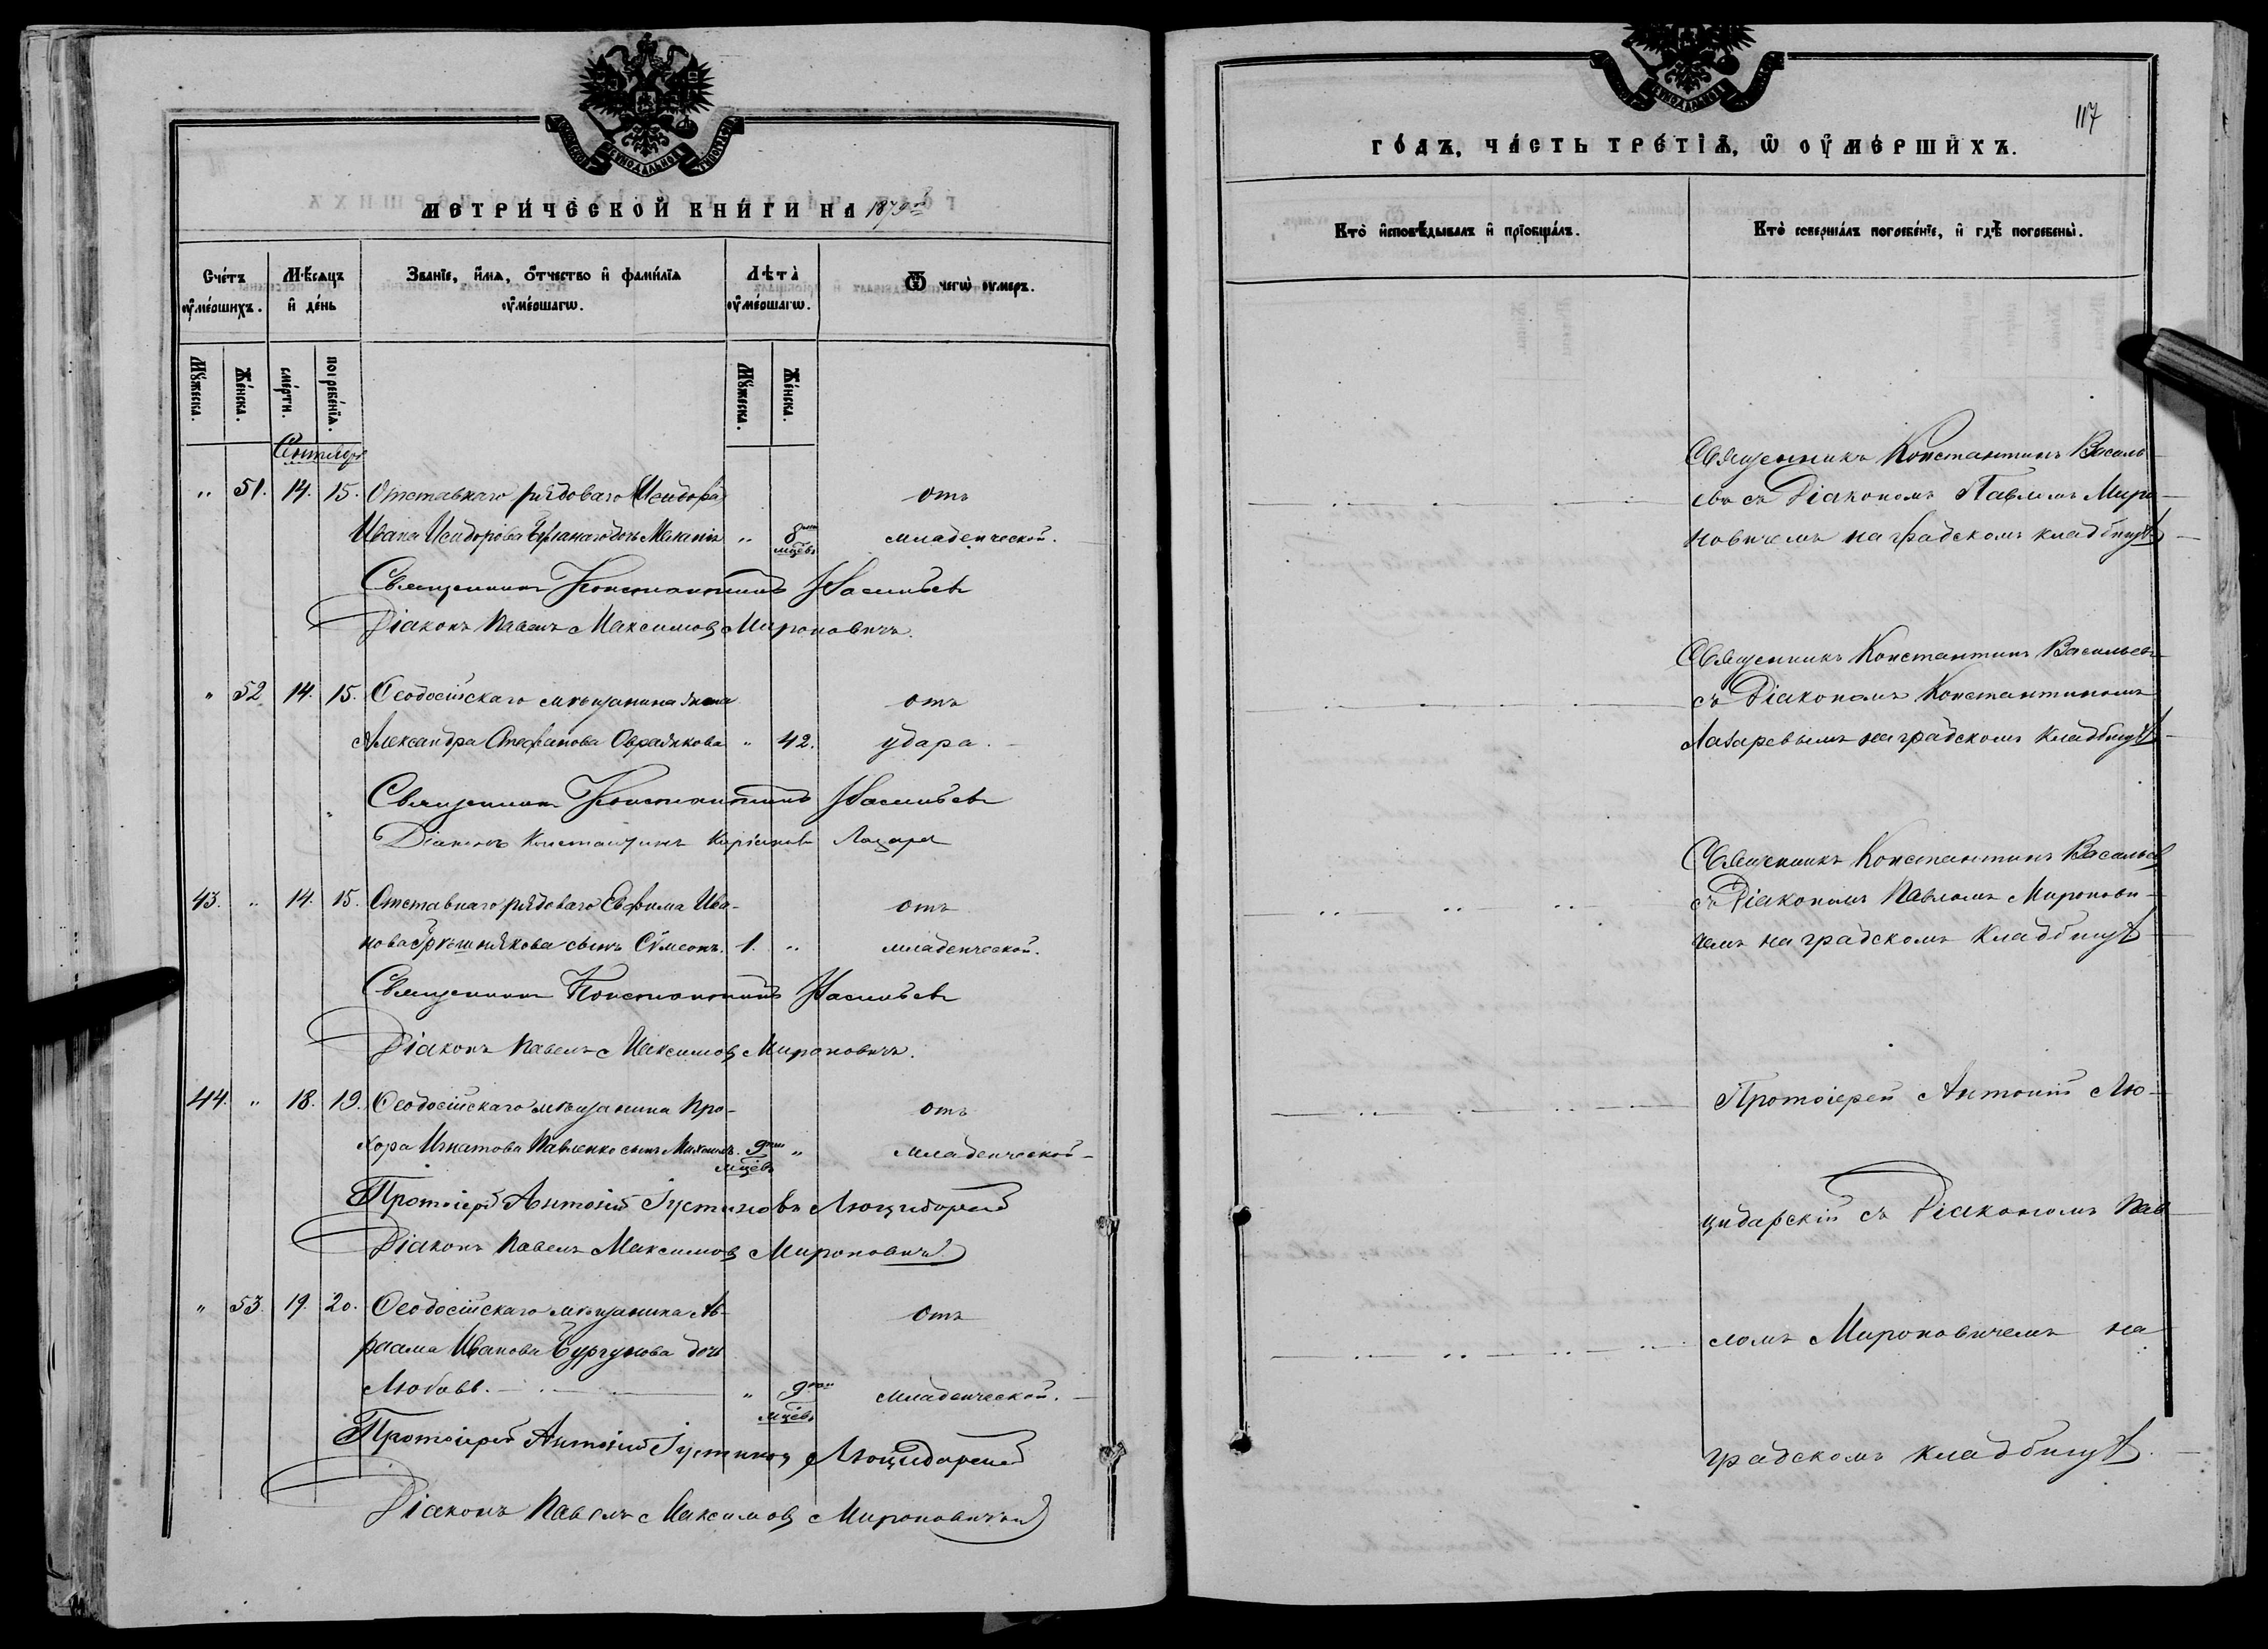 МЕТРИЧЕСКОЙ КНИГИ НА 1879й
Счетъ умершихъ.
Мѣсяцъ и день
Званіе, имя, отчество и фамилія умершагѡ.
Лѣта умершагѡ.
Ѿ чегѡ умеръ.
Мужеска.
Женска.
смерти.
погребенія.
Мужеска.
Женска.
Сентябрь
" 51. 14. 15. Отставнаго рядоваго (Исидора) отъ
Ивана Исидорова дочь Меланія " 8ми мцевъ младенческой.
Священникъ Константинъ Васильевъ
Діаконъ Павелъ Максимовъ Мироновичъ.
" 52 14. 15. Ѳеодосійскаго мѣщанина жена отъ
Александра Стефанова " 42. удара.
Священникъ Константинъ Васильевъ
Діаконъ Константинъ Лазаре
43. " 14. 15. Отставнаго рядоваго Евфима Ива- отъ
нова сынъ Сѵмеонъ. 1. " младенческой.
Священникъ Константинъ Васильевъ
Діаконъ Павелъ Максимовъ Мироновичъ.
44. " 18. 19. Ѳеодосійскаго мѣщанина Про- отъ
хора Игнатова Павленко сынъ Михаилъ. 9ти мцевъ " младенческой
Протоіерей Антоній Іустиновъ Люцидарскій
Діаконъ Павелъ Максимовъ Мироновичъ
" 53. 19. 20. Ѳеодосійскаго мѣщанина Ав- отъ
раама Иванова Бургунова дочь
Любовь. " 9ти мцевъ младенческой.
Протоіерей Антоній Іустиновъ Люцидарскій
Діаконъ Павелъ Максимовъ Мироновичъ
117
ГОДЪ, ЧАСТЬ ТРЕТІЯ, Ѿ УМЕРШИХЪ.
Кто исповѣдывалъ и пріобщалъ.
Кто совершалъ погребеніе, и гдѣ погребены.
Священникъ Константинъ Василь-
евъ съ Діакономъ Павломъ Миро-
новичемъ на градскомъ кладбищѣ
Священникъ Константинъ Васильевъ
съ Діакономъ Константиномъ
Лазаревымъ на градскомъ кладбищѣ
Священникъ Константинъ Васильев
съ Діакономъ Павломъ Миронови-
чемъ на градскомъ кладбищѣ
Протоіерей Антоній Лю-
цидарскій съ Діакономъ Пав-
ломъ Мироновичемъ на
градскомъ кладбищѣ.